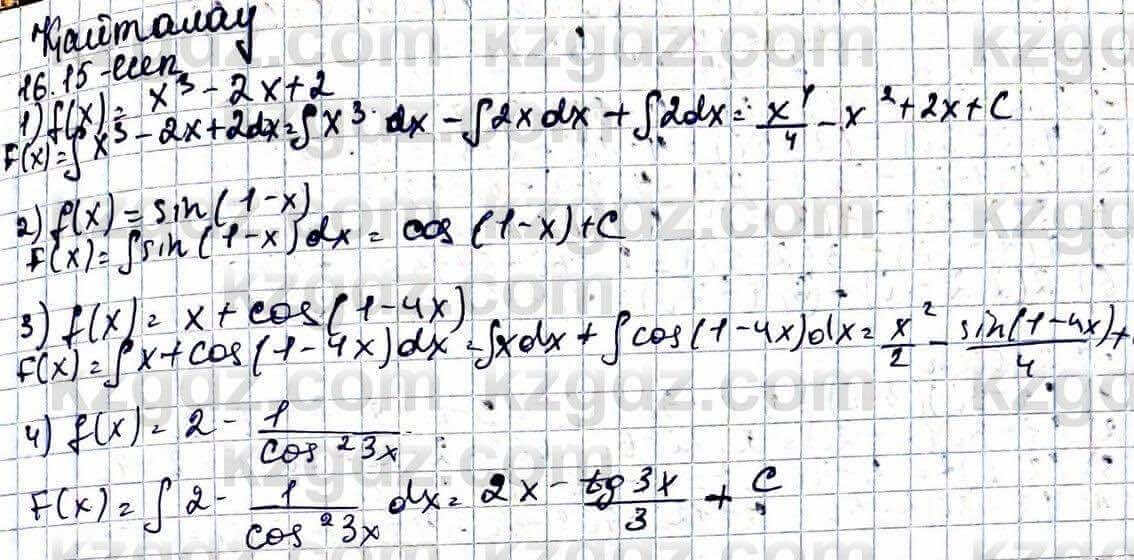 Қайталау
16.15-есеп
1) f(x) = x³ - 2x + 2
F(x) = ∫x³ - 2x + 2dx = ∫x³ dx - ∫2x dx + ∫2dx = x⁴/4 - x² + 2x + C
2) f(x) = sin(1-x)
F(x) = ∫sin(1-x)dx = cos(1-x) + C
3) f(x) = x + cos(1-4x)
F(x) = ∫x + cos(1-4x)dx = ∫xdx + ∫cos(1-4x)dx = x²/2 - sin(1-4x)/4 +
4) f(x) = 2 - 1/cos²3x
F(x) = ∫2 - 1/cos²3x dx = 2x - tg3x/3 + C
kzgdz.com